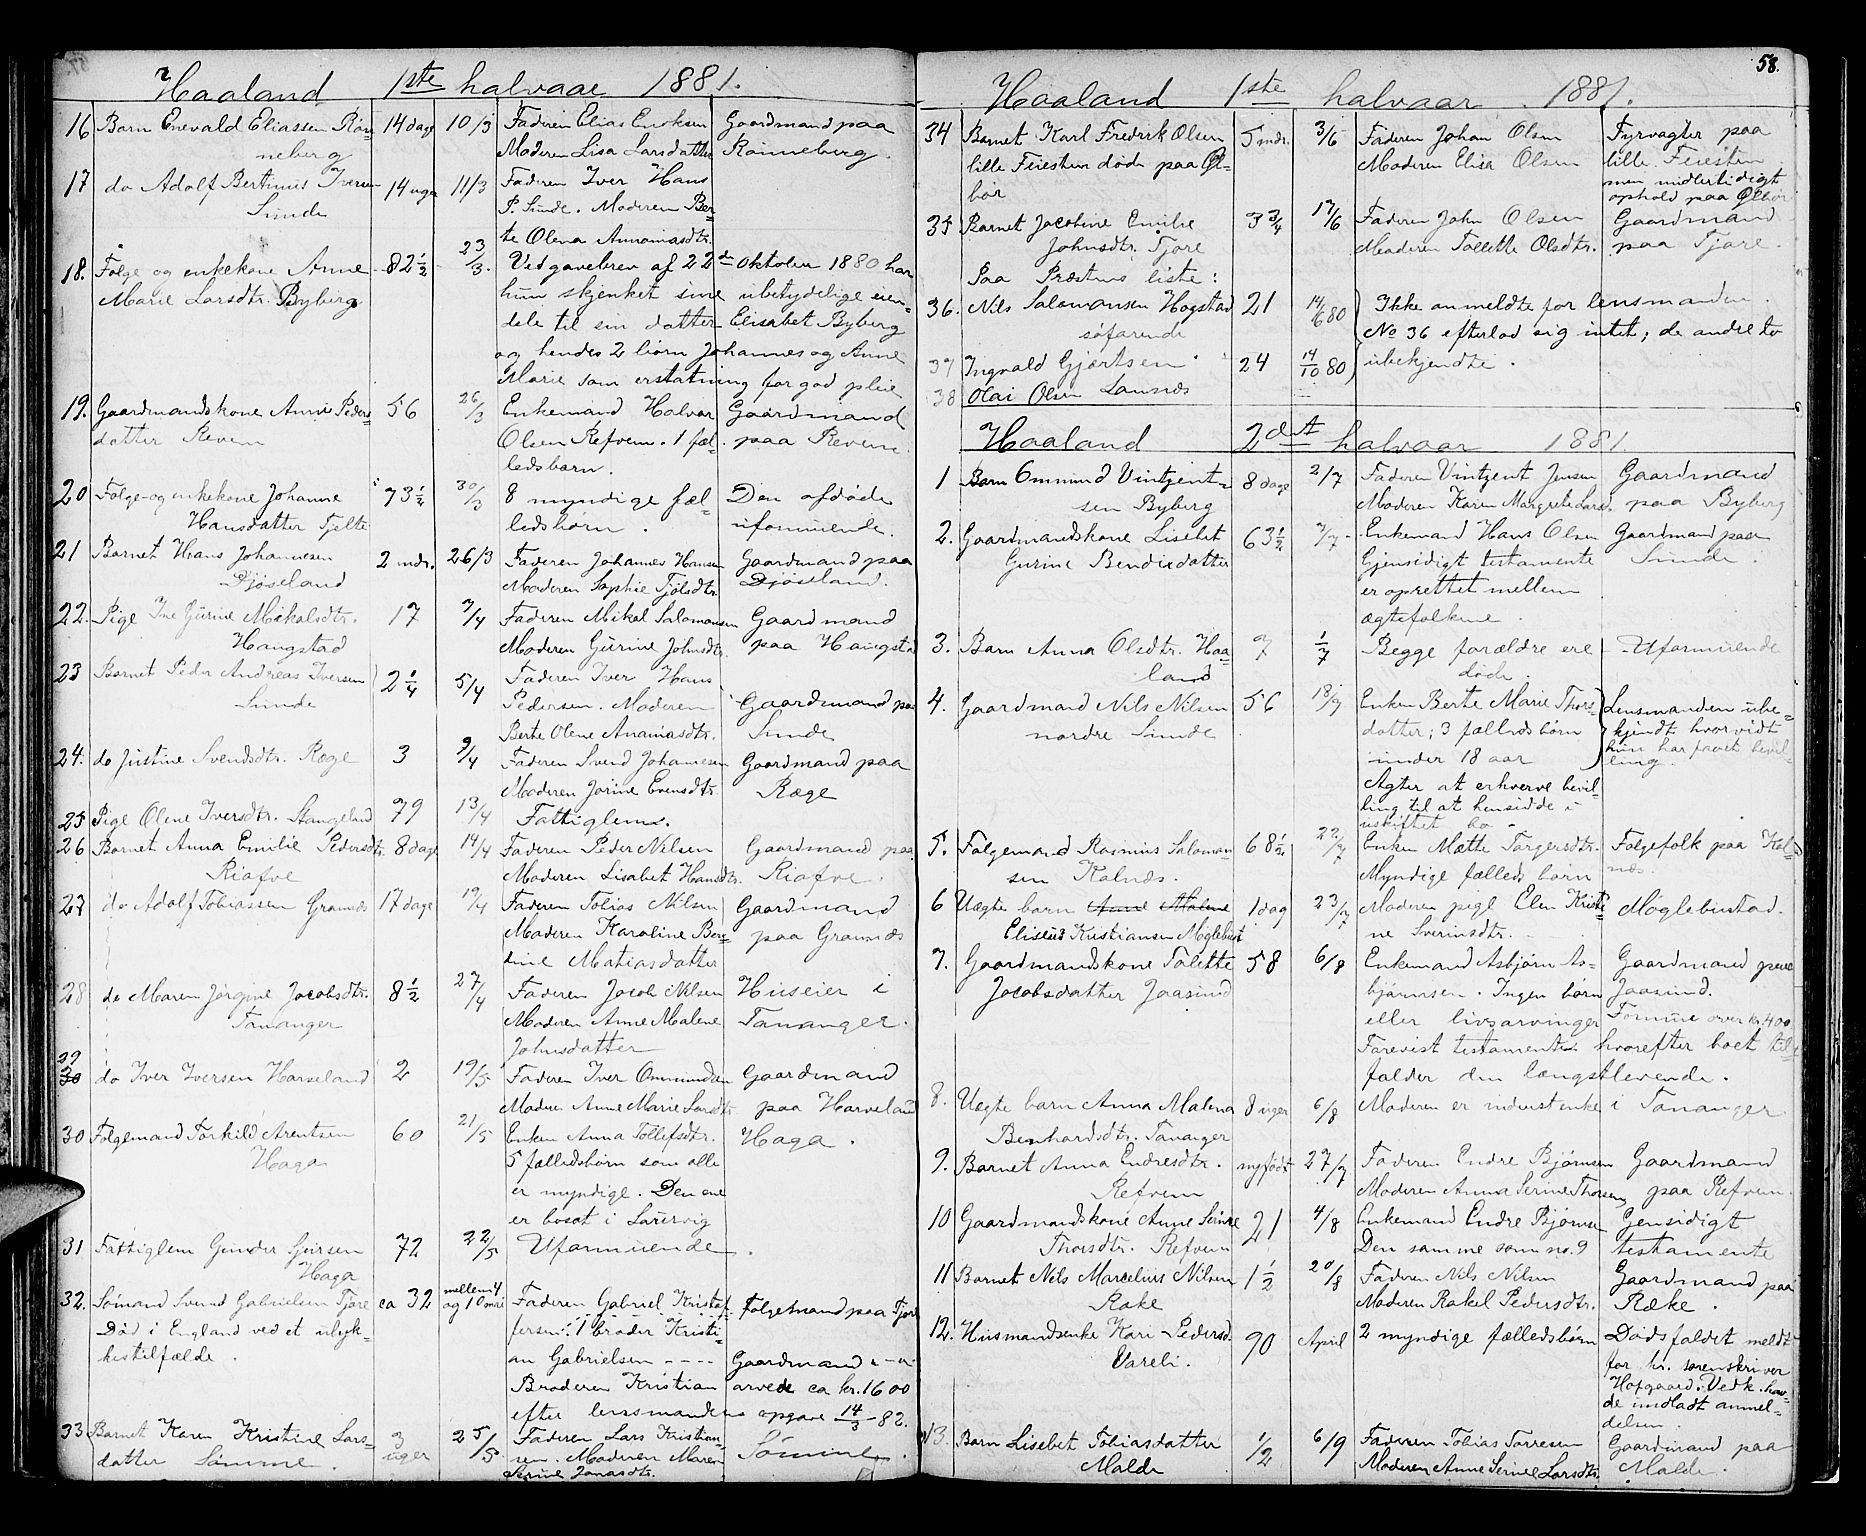 Haaland 1ste halvaar 1881.
16 Barn Enevald Eliassen Rön- 14 dage 10/3 Faderen Elias Eriksen Gaardmand paa
neberg Moderen Lisa Larsdatter Rönneberg.
17 do Adolf Bertinius Iversen 14 uger 11/3 Faderen Iver Hans
Sunde P. Sunde. Moderen Ber-
te Olena Annaniasdtr.
18. Følge og enkekone Anne 82 1/2 23/3. Ved gavebrev af 22de Oktober 1880 har
Marie Larsdtr. Byberg hun skjenket sine ubetydelige eien-
dele til sin datter Elisabet Byberg
og hendes 2 börn Johannes og Anne
Marie som erstatning for god pleie
19. Gaardmandskone Anne Peders- 56 26/3 Enkemand Halvor Gaardmand
datter Revem Olsen Refvem. 1 fæl- paa Revem.
ledsbarn.
20 Følge- og enkekone Johanne 73 1/2 30/3 8 myndige fæl- Den afdöde
Hansdatter Tjelte ledsbörn. uformuende.
21 Barnet Hans Johannesen 2 mdr. 26/3 Faderen Johannes Hansen Gaardmand paa
Djöseland Moderen Sophie Tjölsdtr. Djöseland.
22. Pige Ine Gurine Mikalsdtr. 17 7/4 Faderen Mikal Salomonsen Gaardmand
Haugstad Moderen Gurine Johnsdtr. paa Haugstad
23 Barnet Peder Andreas Iversen 2 1/4 5/4 Faderen Iver Hans
Sunde Pedersen. Moderen Gaardmand paa
Berte Olene Ananiasdtr. Sunde
24. do Justine Svendsdtr. Ræge 3 9/4 Faderen Svend Johannesen Gaardmand paa
Moderen Jorine Evensdtr. Ræge
25 Pige Olene Iversdtr. Stangeland 79 13/4 Fattiglem.
26 Barnet Anna Emilie Pedersdtr. 8 dage 14/4 Faderen Peder Nilsen Gaardmand paa
Risfve Moderen Lisabet Hansdtr. Risfve.
27 do Adolf Tobiassen Grannes 17 dage 19/4 Faderen Tobias Nilsen Gaardmand
Moderen Karoline Ber- paa Grannes
tine Matiasdatter
28 do Maren Jörgine Jacobsdtr. 8 1/2 27/4 Faderen Jacob Nilsen Huseier i
Tananger Moderen Anne Malene Tananger.
Johnsdatter
29
30 do Iver Iversen Harveland 2 19/5 Faderen Iver Ommundsen Gaardmand
Moderen Anne Marie Larsdtr. paa Harveland
30 Følgemand Torkild Arentsen 60 21/5 Enken Anna Tollefsdtr. Haga.
Haga 5 fælledsbörn som alle
er myndige. Den ene
er bosat i Laurvig
31 Fattiglem Gunder Sjursen 72 22/5 Uformuende.
Haga
32. Sömand Svend Gabrielsen Tjore ca 32 mellem 4 Faderen Gabriel Kristof- Følgemand paa Tjore
og 10 mai
Död i England ved et ulyk- fersen. 1 broder Kristi-
kestilfælde. an Gabrielsen - - - - Gaardmand
Broderen Kristian arvede ca kr. 1600
efter lensmandens opgave 14/3 - 82.
33 Barnet Karen Kristine Lars- 3 25/5 Faderen Lars Kristian- Sömme.
datter Sömme. uger sen. Moderen Maren
Serine Jonasdtr.
58.
Haaland 1ste halvaar 1881.
34 Barnet Karl Fredrik Olsen 5 mdr. 3/6 Faderen Johan Olsen Fyrvagter paa
lille Feiesten döde paa Öl- Moderen Elisa Olsen lille Feiesten
bör men midlertidigt
ophold paa Ölbör
35 Barnet Jacobine Emilie 3 3/4 17/6 Faderen John Olsen Gaardmand
Johnsdtr. Tjore Moderen Tollette Olsdtr. paa Tjore
Paa Præstens liste:
36. Nils Salamonsen Hogstad 21 14/6 80 Ikke anmeldte for lensmanden.
söfarende No 36 efterlod sig intet; de andre to
37 Ingvald Gjertsen 24 14/10 80 ubekjendte.
38 Olai Olsen Sannes
Haaland 2det halvaar 1881
1 Barn Ommund Vintzent- 8 dage 2/7 Faderen Vintzent Jensen Gaardmand
sen Byberg Moderen Karen Margrete Larsd. paa Byberg
2. Gaardmandskone Lisebet 63 1/2 7/7 Enkemand Hans Olsen Gaardmand paa
Gurine Bendixdatter Gjensidigt testamente Sunde.
er oprettet mellem
ægtefolkene.
3. Barn Anna Olsdtr. Haa- 7 1/7 Begge forældre ere Uformuende
land döde.
4. Gaardmand Nils Nilsen 56 18/7 Enken Berte Marie Thors- Lensmanden ube-
nordre Sunde datter; 3 fælledsbörn kjendt hvorvidt
under 18 aar hun har faaet bevil-
ling.
Agter at erhverve bevil-
ling til at hensidde i
uskiftet bo.
5. Følgemand Rasmus Saloman- 68 1/2 22/7 Enken Mætte Torgersdtr. Følgefolk paa Kol-
sen Kolnes. Myndige fælleds börn nes.
6 Uægte barn Anne Malene 1 dag 23/7 Moderen pige Elen Kristi- Møglebustad.
Eliseus Kristiansen Møglebust ne Sverinsdtr.
7. Gaardmandskone Tolette 58 6/8 Enkemand Asbjörn As- Gaardmand paa
Jacobsdatter Jaasund björnsen. Ingen börn Jaasund.
eller livsarvinger Formue over kr. 400
Forevist testamente hvorefter boet til-
falder den længstlevende.
8. Uægte barn Anna Malena 8 uger 6/8 Moderen er inderstenke i Tananger
Benhardsdtr. Tananger
9. Barnet Anna Endresdtr. nyfødt 27/7 Faderen Endre Bjørnsen Gaardmand
Refvem Moderen Anna Serine Thorsen paa Refvem.
10 Gaardmandskone Anne Serine 21 4/8 Enkemand Endre Bjørnsen Gensidigt
Thorsdtr. Refvem Den samme som no. 9 testamente
11 Barnet Nils Marcelius Nilsen 1 1/2 20/8 Faderen Nils Nilsen Gaardmand paa
Ræke Moderen Rakel Pedersdtr. Ræke.
12. Husmandsenke Kari Pedersd. 90 April 2 myndige fælledsbörn Dödsfaldet meldt
Vareli. for hr. sorenskriver
Hofgaard. Vedk. hav-
de undladt anmel-
delsen.
13. Barn Lisebet Tobiasdatter 1/2 6/9 Faderen Tobias Torresen Gaardmand paa
Malde Moderen Anne Serine Larsdtr. Malde.